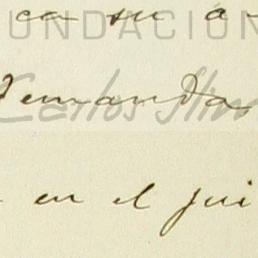 ca su a
FUNDACIÓN
Fernanda
Carlos Slim
en el jui